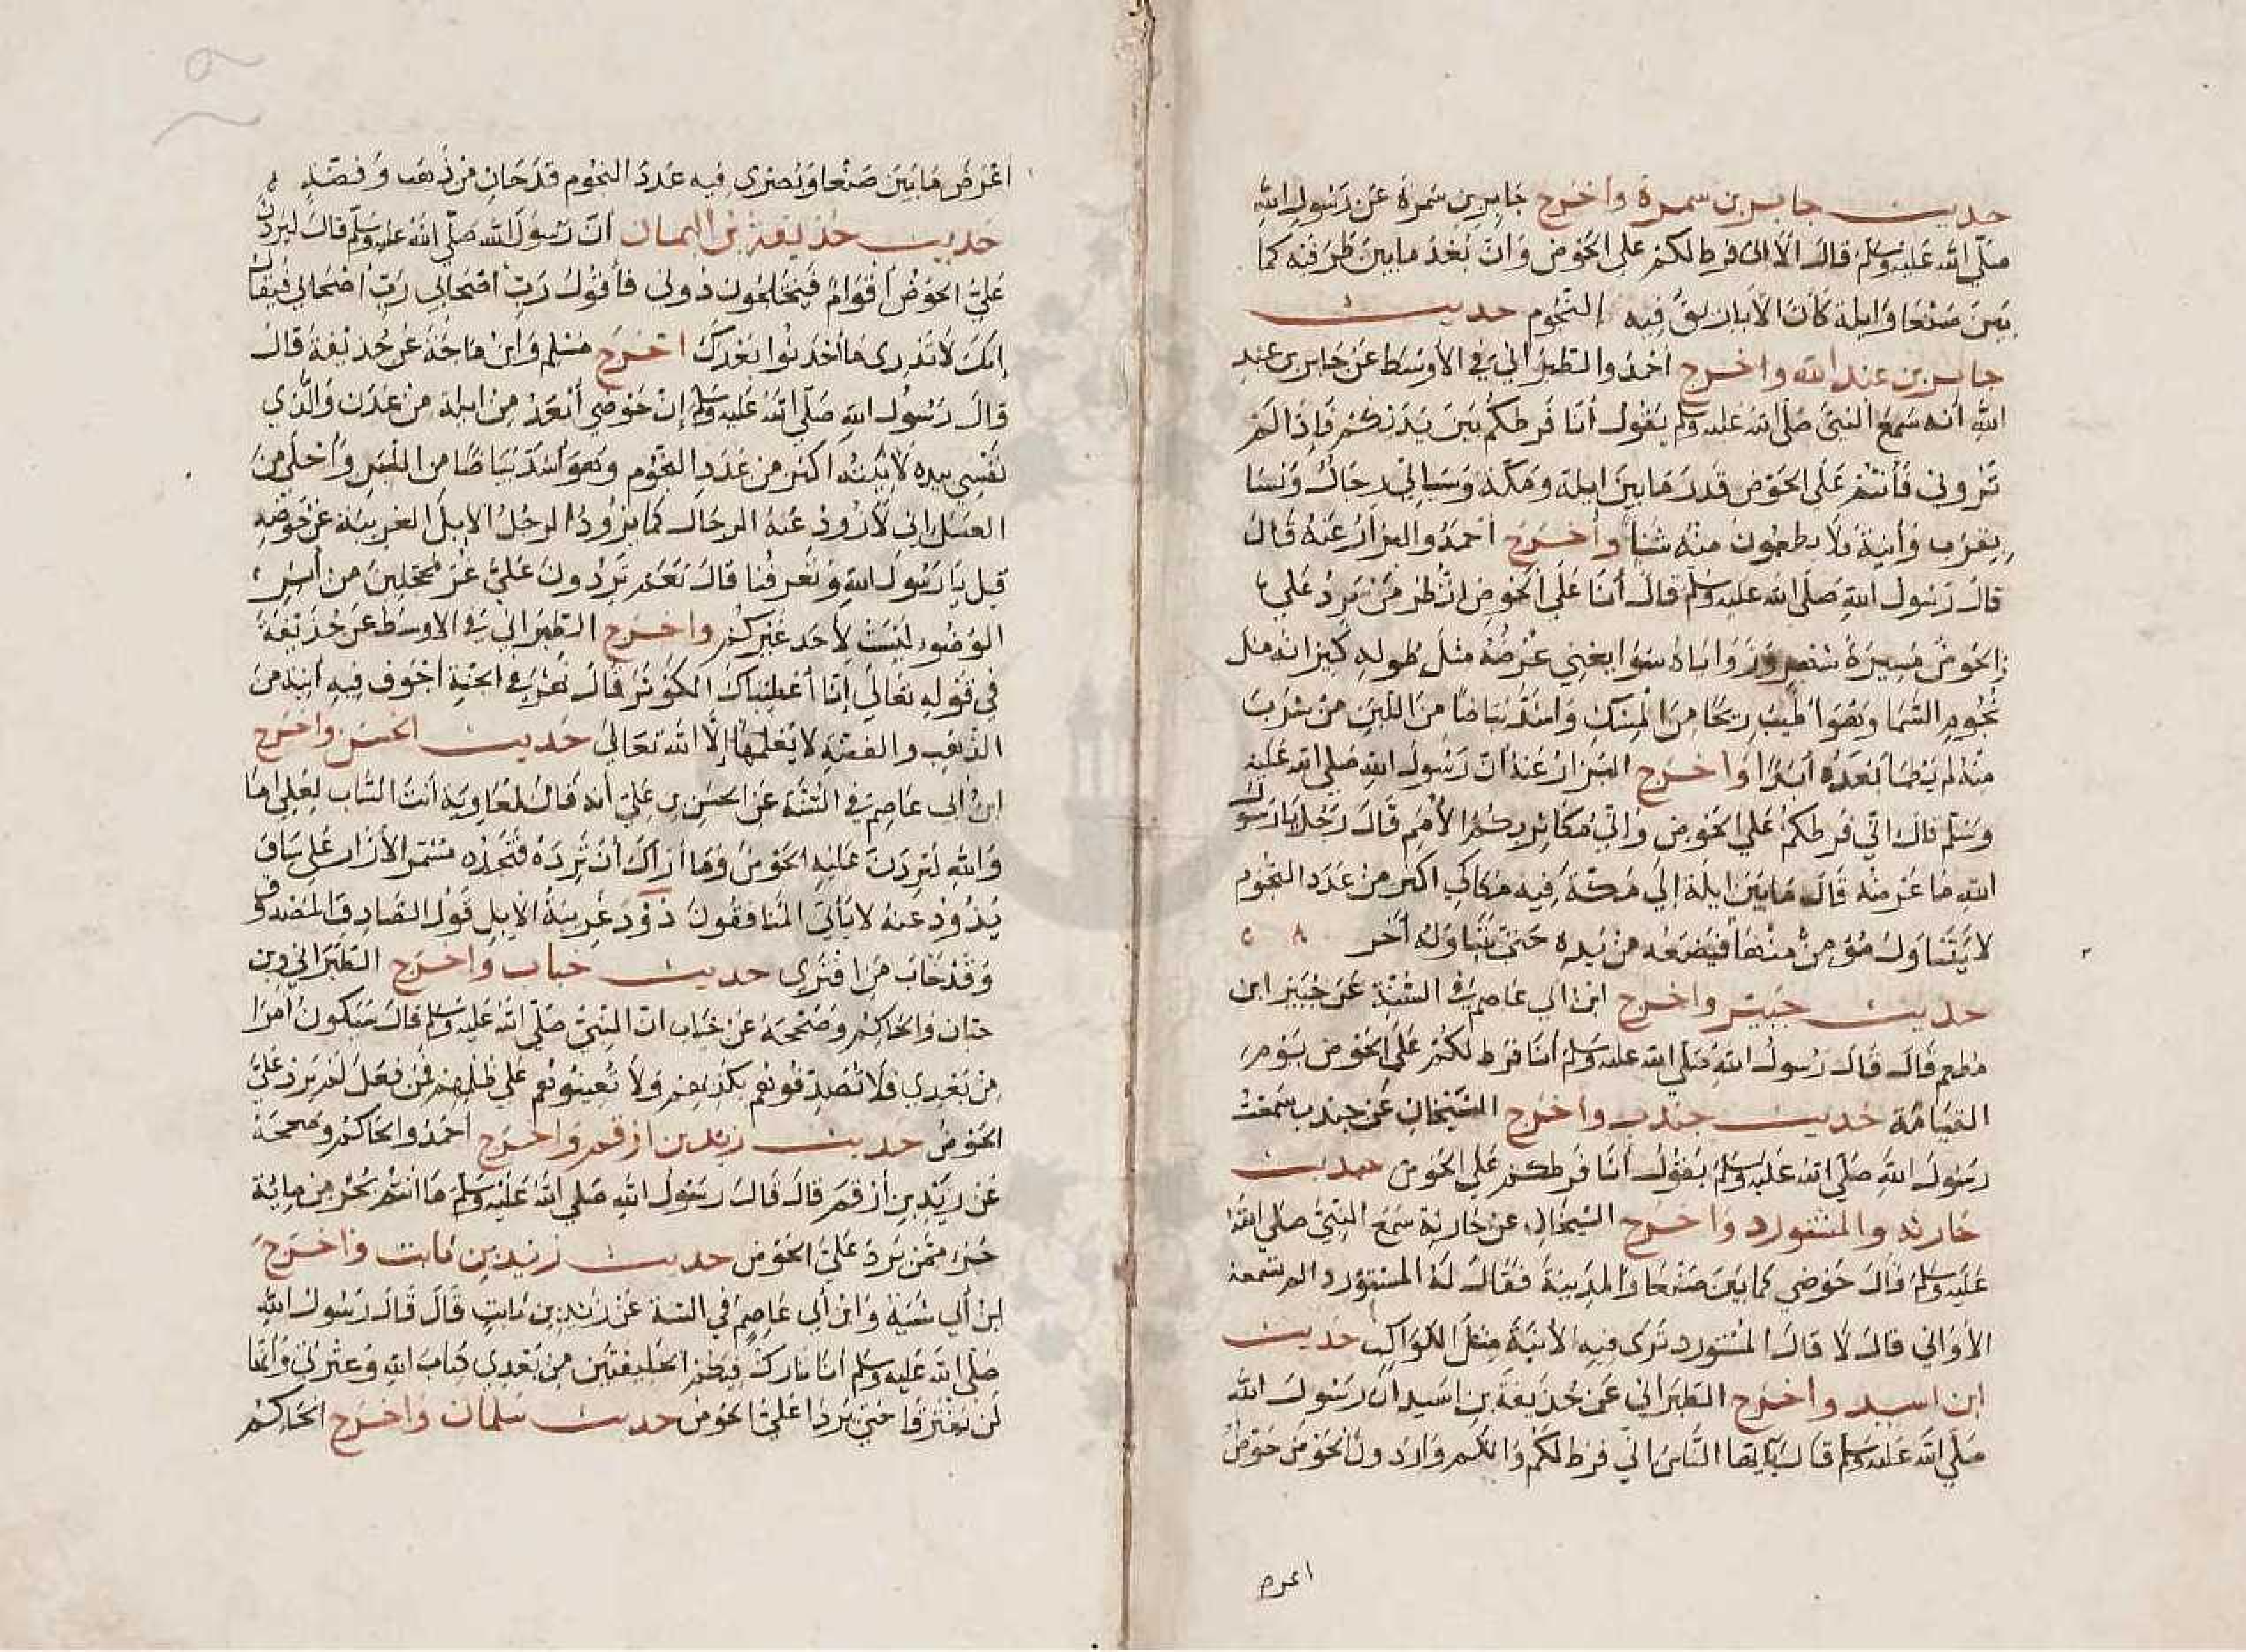 حديث جابر بن سمرة واخرج جابر بن سمرة عن رسول الله
صلى الله عليه وسلم قال الا انى فرط لكم على الحوض وان بعد ما بين طرفيه كما
بين صنعا وايلة كان الاباريق فيه النجوم حديث
جابر بن عبد الله واخرج احمد والطبراني في الاوسط عن جابر بن عبد
الله انه سمع النبي صلى الله عليه وسلم يقول انا فرطكم بين يديكم فاذا لم
تروني فانتم على الحوض قدر ما بين ايلة ومكة وسياتي رجال ونسا
بقرب وانية فلا يطعمون منه شيا واخرج احمد والبزار عنه قال
قال رسول الله صلى الله عليه وسلم قال انا على الحوض انظر من يرد علي
والحوض مسيرة شهر وزواياه سوا يعني عرضه مثل طوله كيزانه مثل
نجوم السما وهو اطيب ريحا من المسك واشد بياضا من اللبن من شرب
منه لم يظما بعده ابدا واخرج البزار عنه ان رسول الله صلى الله عليه
وسلم قال اني فرطكم على الحوض واني مكاثر بكم الامم قال رجل يا رسول
الله ما عرضه قال ما بين ايلة الى مكة فيه مكاكي اكثر من عدد النجوم
لا يتناول مؤمن منها فيضعه من يده حتى يتناوله اخر
حديث جبير واخرج ابن ابى عاصم في السنة عن جبير ابن
مطعم قال قال رسول الله صلى الله عليه وسلم انا فرط لكم على الحوض يوم
القيامة حديث جندب واخرج الشيخان عن جندب سمعت
رسول الله صلى الله عليه وسلم يقول انا فرطكم على الحوض حديث
حارثه والمستورد واخرج الشيخان عن حارثة سمع النبي صلى الله
عليه وسلم قال حوضي كما بين صنعا والمدينة فقال له المستورد الم تسمعه
الاواني قال لا قال المستورد ترى فيه الانية مثل الكواكب حديث
ابن اسيد واخرج الطبراني عن حذيفة بن اسيد ان رسول الله
صلى الله عليه وسلم قال يايها الناس اني فرط لكم وانكم واردون الحوض حوض
اعرض
اعرض ما بين صنعا وبصرى فيه عدد النجوم قدحان من ذهب وفضة
حديث حذيفة بن اليمان ان رسول الله صلى الله عليه وسلم قال ليردن
علي الحوض اقوام فيختلجون دوني فاقول رب اصحابي رب اصحابي فيقال
انك لا تدرى ما احدثوا بعدك اخرج مسلم وابن ماجة عن حذيفة قال
قال رسول الله صلى الله عليه وسلم ان حوضي ابعد من ايلة من عدن والذي
نفسي بيده لانيته اكثر من عدد النجوم وهو اشد بياضا من اللبن واحلى من
العسل اني لاذود عنه الرجال كما يزود الرجل الابل الغريبة عن حوضه
قيل يا رسول الله وتعرفنا قال نعم تردون علي غر محجلين من اثر
الوضوء ليست لاحد غيركم واخرج الطبراني في الاوسط عن حذيفة
في قوله تعالى انا اعطيناك الكوثر قال نهر في الجنة اجوف فيه انية من
الذهب والفضة لا يعلمها الا الله تعالى حديث الحسن واخرج
ابن ابى عاصم في السنة عن الحسن بن علي انه قال لمعاوية انت الساب لعلي اما
والله لتردن عليه الحوض وما اراك ان ترده فتجده مشمر الازار على ساق
يذود عنه لا ياتي المنافقون ذود غريبة الابل قول الصادق المصدوق
وقد خاب من افترى حديث خباب واخرج الطبراني وبن
حبان والحاكم وصححه عن خباب ان النبي صلى الله عليه وسلم قال سيكون امرا
من بعدي فلا تصدقوهم بكذبهم ولا تعينوهم على ظلمهم فمن فعل لم يرد علي
الحوض حديث زيد بن ارقم واخرج احمد والحاكم وصححه
عن زيد بن ارقم قال قال رسول الله صلى الله عليه وسلم ما انتم بجزء من ماية
جزء ممن يرد علي الحوض حديث زيد بن ثابت واخرج
ابن ابي شيبة وابن ابي عاصم في السنة عن زيد بن ثابت قال قال رسول الله
صلى الله عليه وسلم انا تارك فيكم الخليفتين من بعدي كتاب الله وعترتي وانهما
لن يفترقا حتى يردا علي الحوض حديث سلمان واخرج الحاكم